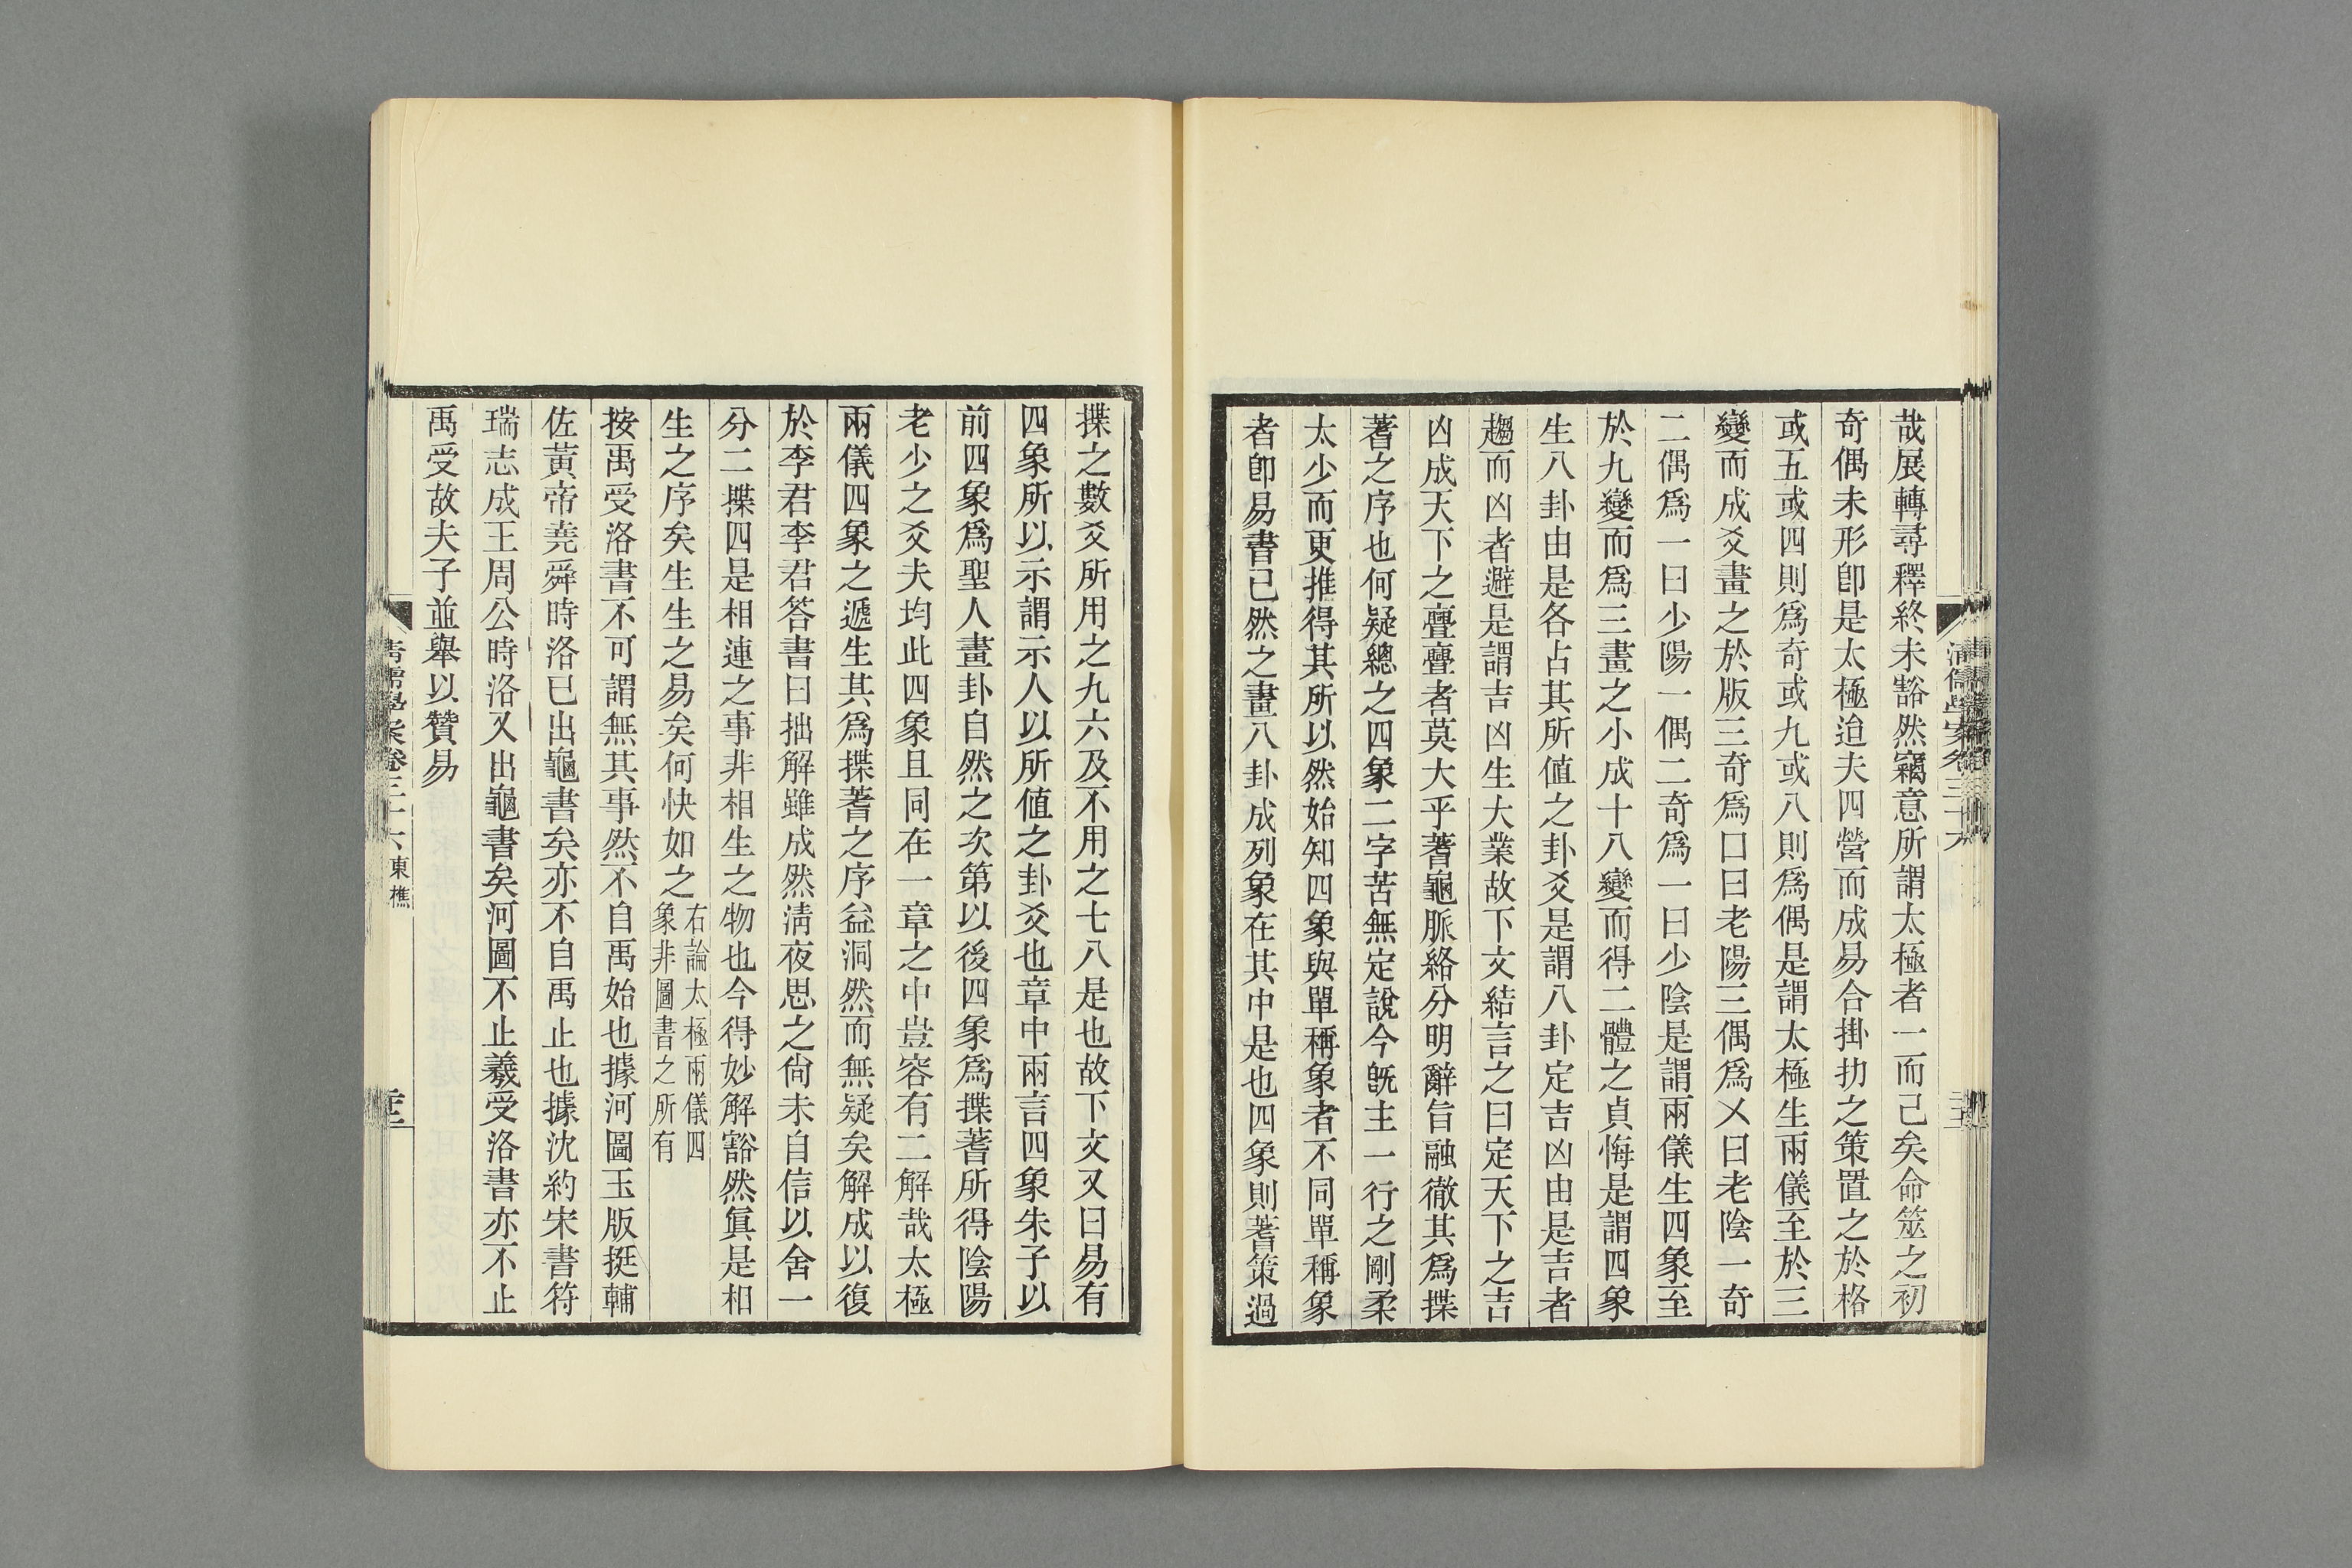 哉展轉尋釋終未豁然竊意所謂太極者一而已矣命筮之初
奇偶未形卽是太極迨夫四營而成易合掛扐之策置之於格
或五或四則爲奇或九或八則爲偶是謂太極生兩儀至於三
變而成爻畫之於版三奇爲囗曰老陽三偶爲㐅曰老陰一奇
二偶爲一曰少陽一偶二奇爲一曰少陰是謂兩儀生四象至
於九變而爲三畫之小成十八變而得二體之貞悔是謂四象
生八卦由是各占其所值之卦爻是謂八卦定吉凶由是吉者
趨而凶者避是謂吉凶生大業故下文結言之曰定天下之吉
凶成天下之亹亹者莫大乎蓍龜脈絡分明辭旨融徹其爲揲
蓍之序也何疑總之四象二字苦無定說今旣主一行之剛柔
太少而更推得其所以然始知四象與單稱象者不同單稱象
者卽易書已然之畫八卦成列象在其中是也四象則蓍策過
揲之數爻所用之九六及不用之七八是也故下文又曰易有
四象所以示謂示人以所值之卦爻也章中兩言四象朱子以
前四象爲聖人畫卦自然之次第以後四象爲揲蓍所得陰陽
老少之爻夫均此四象且同在一章之中豈容有二解哉太極
兩儀四象之遞生其爲揲蓍之序益洞然而無疑矣解成以復
於李君李君答書曰拙解雖成然淸夜思之尙未自信以舍一
分二揲四是相連之事非相生之物也今得妙解豁然眞是相
生之序矣生生之易矣何快如之右論太極兩儀四
象非圖書之所有
按禹受洛書不可謂無其事然不自禹始也據河圖玉版挺輔
佐黃帝堯舜時洛已出龜書矣亦不自禹止也據沈約宋書符
瑞志成王周公時洛又出龜書矣河圖不止羲受洛書亦不止
禹受故夫子並舉以贊易
東樵